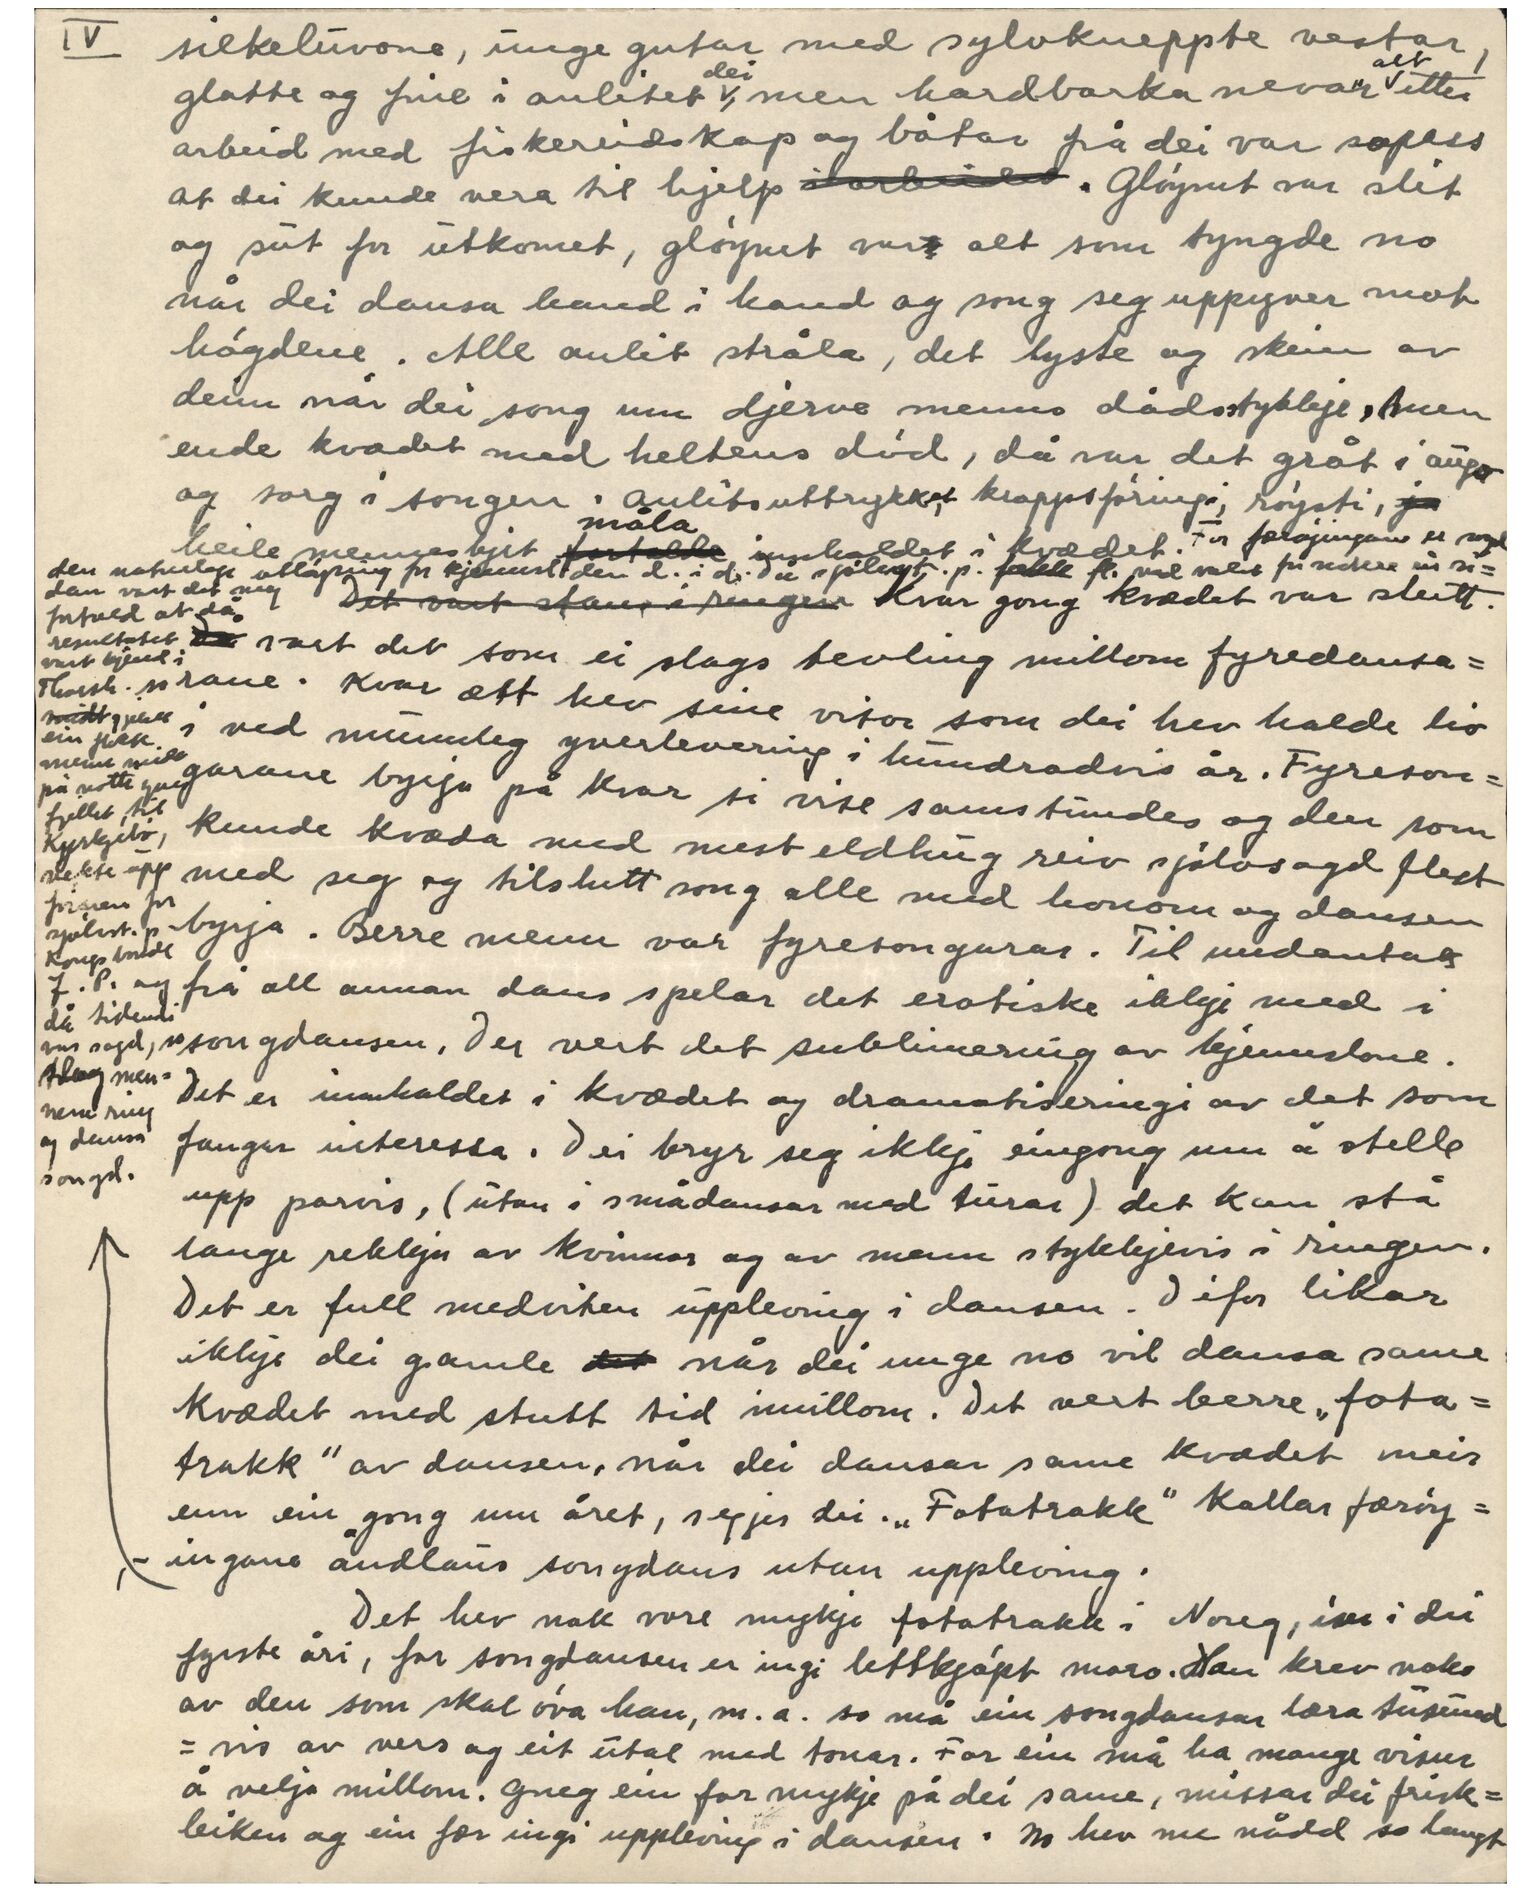 IV
silkeluvone, unge gutar med sylvkneppte vestar,
glatte og fine i anlitet dei, men hardbarka nevar alt etter
arbeid med fiskereidskap og båtar frå dei var sopass
at dei kunde vera til hjelp i arbeidet. Gløymt var slit
og sut for utkomet, gløymt var alt som tyngde no
når dei dansa hand i hand og song seg uppyver mot
høgdene. Alle anlit stråla, det lyste og skein av
deim når dei song um djerve menns dådsstykkje, men
ende kvædet med heltens død, då var det gråt i augo
og sorg i songen. Anlitsuttrykket, kroppsføringi, røysti, ja
heile menneskjet fortalde måla innhaldet i kvædet. For færøyingane er songd
den naturlege utløysing for kjenslone
Det vart stans i ringen Kvar gong kvædet var slutt.
Då vart det som ei slags tevling millom fyredansa=
rane. Kvar ætt hev sine visor som dei hev halde liv
i ved munnleg yverlevering i hundradvis år. Fyreson=
garane byrja på kvar si vise samstundes og den som
kunde kvæda med mest eldhug reiv sjølvsagd flest
med seg og tilslutt song alle med honom og dansen
byrja. Berre menn var fyresongarar. Til undantak
frå all annan dans spelar det erotiske ikkje med i
songdansen. Der vert det sublimering av kjenslone.
Det er innhaldet i kvædet og dramatiseringi av det som
fangar interessa. Dei bryr seg ikkje eingong um å stelle
upp parvis, (utan i smådansar med turar) det kan stå
lange rekkjer av kvinnor og av menn stykkjevis i ringen.
Det er full medviten uppleving i dansen. Difor likar
ikkje dei gamle det når dei unge no vil dansa same
kvædet med stutt tid imillom. Det vert berre „fota=
trakk" av dansen, når dei dansar same kvædet meir
enn ein gong um året, segjer dei. „Fotatrakk" kallar færøy=
ingane åndlaus songdans utan uppleving.
Det hev nok vore mykje fotatrakk i Noreg, i dei
fyrste åri, for songdansen er ingi lettkjøpt moro. Han krev noko
av den som skal øva han, m.a. so må ein songdansar læra tusund
=vis av vers og eit utal med tonar. For ein må ha mange visur
å velja millom. Gneg ein for mykje på dei same, missar dei frisk=
leiken og ein fær ingi uppleving i dansen. No hev me nådd so langt
dan vart det meg
fortald at då
resultatet
vart kjend i
Thorsh. so
gjekk
ein flokk
menn midt
på natti yver
fjellet til
Kyrkjebø,
vekte upp
føraren for
sjølvst. p.
Kongsbonde
J. P. og
då tidendi
var sagd, so
slog men=
nene ring
og dansa
songd.